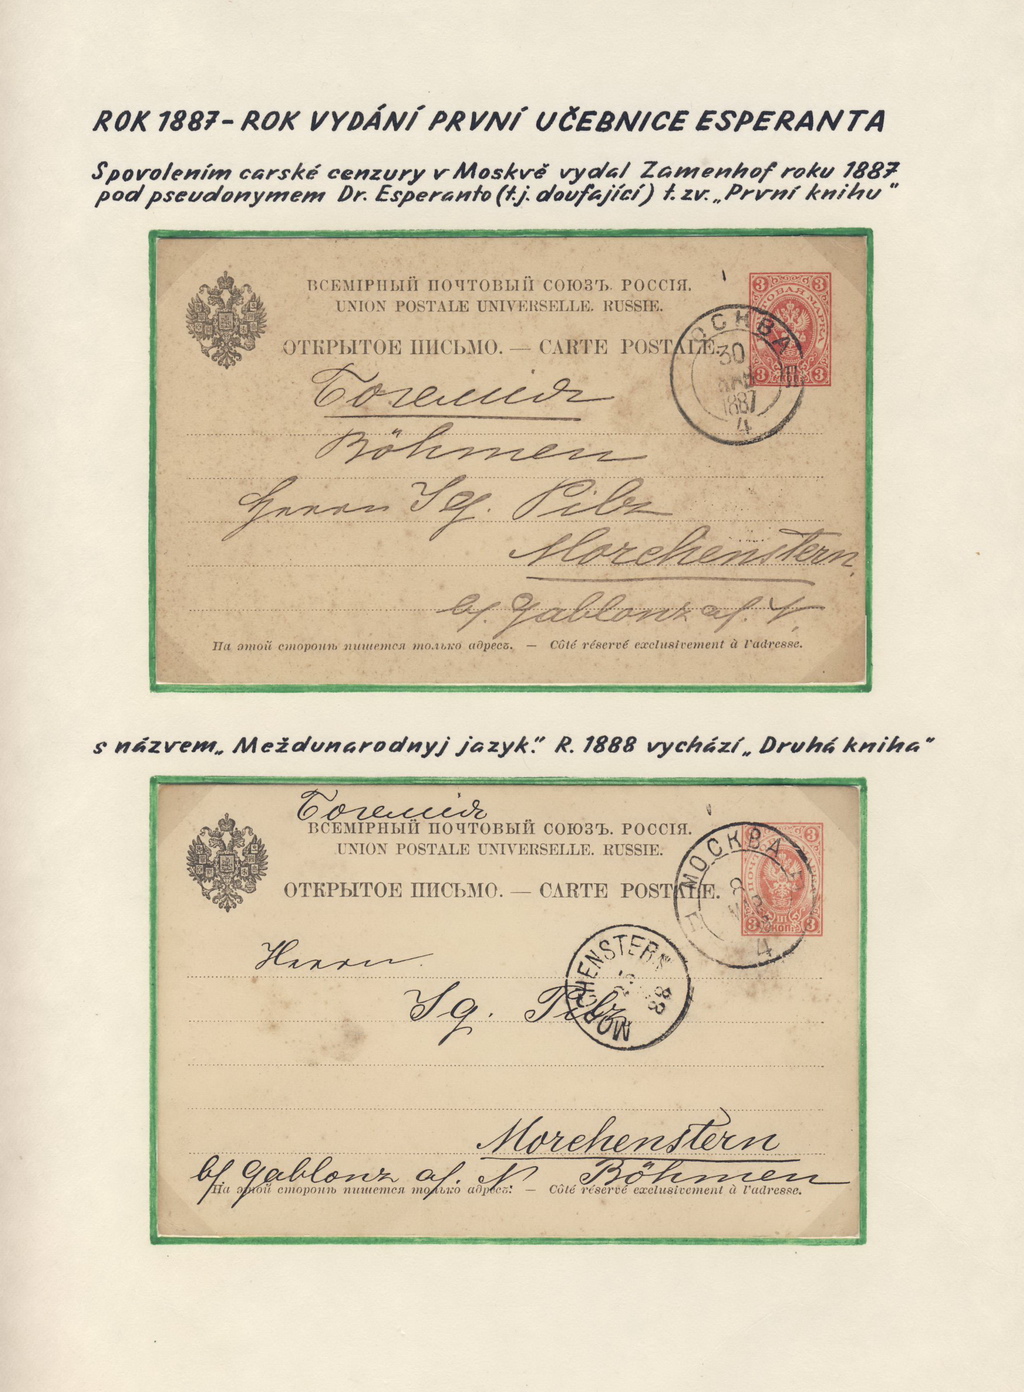 ROK 1887 - ROK VYDÁNÍ PRVNÍ UČEBNICE ESPERANTA
S povolením carské cenzury v Moskvě vydal Zamenhof roku 1887
pod pseudonymem Dr. Esperanto (t.j. doufající) t. zv. „První knihu"
ВСЕМІРНЫЙ ПОЧТОВЫЙ СОЮЗЪ. РОССІЯ.
UNION POSTALE UNIVERSELLE. RUSSIE.
ОТКРЫТОЕ ПИСЬМО. — CARTE POSTALE.
3 3
ПОЧТОВАЯ МАРКА
3 3
МОСКВА
30
1887
4
Богемія
Böhmen
Herrn Ig. Pilz
Morchenstern
b/. Gablonz a/. N.
На этой сторонѣ пишется только адресъ. — Côté réservé exclusivement à l'adresse.
s názvem „Meždunarodnyj jazyk." R. 1888 vychází „Druhá kniha"
Богемія
ВСЕМІРНЫЙ ПОЧТОВЫЙ СОЮЗЪ. РОССІЯ.
UNION POSTALE UNIVERSELLE. RUSSIE.
ОТКРЫТОЕ ПИСЬМО. — CARTE POSTALE.
3
3 КОП 3
МОСКВА
4
MORCHENSTERN
88
Herrn
Ig. Pilz
Morchenstern
b/. Gablonz a/. N Böhmen
На этой сторонѣ пишется только адресъ. — Côté réservé exclusivement à l'adresse.